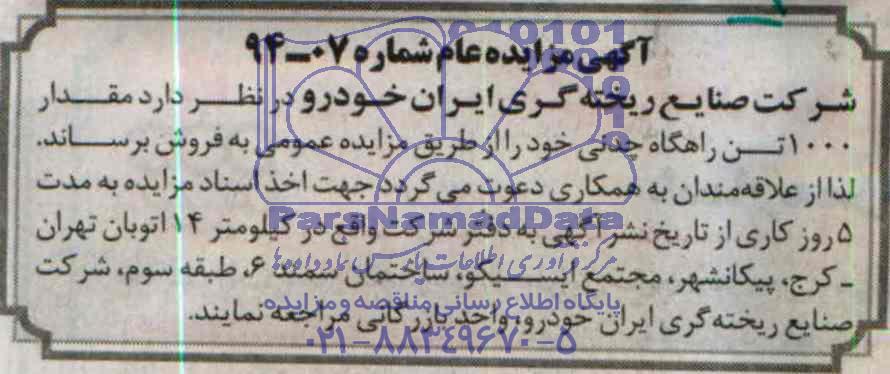 آگهی مزایده عام شماره ۰۷-۹۴
شرکت صنایع ریخته گری ایران خودرو در نظر دارد مقدار
۱۰۰۰ تن راهگاه چدنی خود را از طریق مزایده عمومی به فروش برساند.
لذا از علاقه‌مندان به همکاری دعوت می گردد جهت اخذ اسناد مزایده به مدت
۵ روز کاری از تاریخ نشر آگهی به دفتر شرکت واقع در کیلومتر ۱۴ اتوبان تهران
- کرج، پیکانشهر، مجتمع ایسیکو، ساختمان سمند ۶، طبقه سوم، شرکت
صنایع ریخته گری ایران خودرو، واحد بازرگانی مراجعه نمایند.
ParsNamadData
مرکز فرآوری اطلاعات پارس نماد داده‌ها
پایگاه اطلاع رسانی مناقصه و مزایده
۰۲۱-۸۸۳۴۹۶۷۰-۵